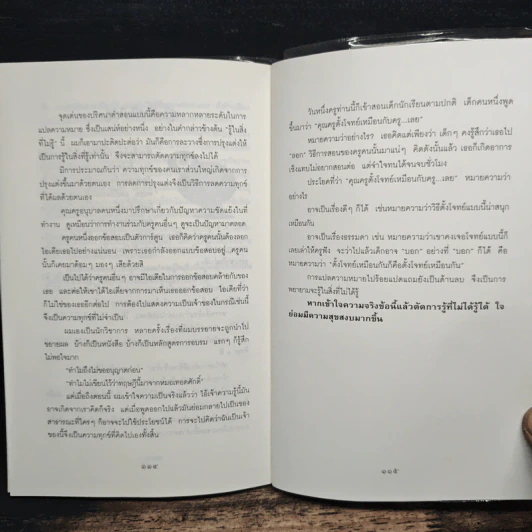 จุดเด่นของปริศนาคำสอนแบบนี้คือความหลากหลายระดับในการ
แปลความหมาย ซึ่งเป็นเสน่ห์อย่างหนึ่ง อย่างในคำกล่าวข้างต้น "รู้ในสิ่ง
ที่ไม่รู้" นี้ ผมก็เอามาปะติดปะต่อว่า มันก็คือการละวางซึ่งการปรุงแต่งให้
เป็นการรู้ในสิ่งที่รู้เท่านั้น จึงจะสามารถตัดความทุกข์ลงไปได้
มีการประมาณกันว่า ความทุกข์ของคนเราส่วนใหญ่เกิดจากการ
ปรุงแต่งขึ้นมาด้วยตนเอง การลดการปรุงแต่งจึงเป็นวิธีการลดความทุกข์
ที่ได้ผลด้วยตนเอง
คุณครูอนุบาลคนหนึ่งมาปรึกษาเกี่ยวกับปัญหาความขัดแย้งในที่
ทำงาน ดูเหมือนว่าการทำงานร่วมกับครูคนอื่นๆ ดูจะเป็นปัญหามาตลอด
ครูคนหนึ่งออกข้อสอบเป็นตัวการ์ตูน เธอก็คิดว่าครูคนนั้นต้องลอก
ไอเดียเธอไปอย่างแน่นอน เพราะเธอกำลังออกแบบข้อสอบอยู่..ครูคน
นั้นก็เคยมาด้อมๆ มองๆ เสียด้วยสิ
เป็นไปได้ว่าครูคนอื่นๆ อาจมีไอเดียในการออกข้อสอบคล้ายกับของ
เธอ และต่อให้เขาได้ไอเดียจากการมาเห็นเธอออกข้อสอบ ไอเดียที่ว่า
ก็ไม่ใช่ของเธออีกต่อไป การต้องไปแสดงความเป็นเจ้าของในกรณีเช่นนี้
จึงเป็นความทุกข์ที่ไม่จำเป็น
ผมเองเป็นนักวิชาการ หลายครั้งเรื่องที่ผมบรรยายจะถูกนำไป
ขยายผล บ้างก็เป็นหนังสือ บ้างก็เป็นหลักสูตรการอบรม แรกๆ ก็รู้สึก
ไม่พอใจมาก
"ทำไมถึงไม่ขออนุญาตก่อน"
"ทำไมไม่เขียนไว้ว่าทฤษฎีนี้มาจากหมอเทอดศักดิ์"
แต่เมื่อถึงตอนนี้ ผมเข้าใจความเป็นจริงแล้วว่า ไอ้เจ้าความรู้นี้มัน
อาจเกิดจากเราคิดก็จริง แต่เมื่อพูดออกไปแล้วมันย่อมกลายไปเป็นของ
สาธารณะที่ใครๆ ก็อาจจะไปใช้ประโยชน์ได้ การจะไปคิดว่าฉันเป็นเจ้า
ของนี้จึงเป็นความทุกข์ที่คิดไปเองทั้งสิ้น
๑๑๔
วันหนึ่งครูท่านนี้ก็เข้าสอนเด็กนักเรียนตามปกติ เด็กคนหนึ่งพูด
ขึ้นมาว่า "คุณครูตั้งโจทย์เหมือนกับครู...เลย"
หมายความว่าอย่างไร? เธอคิดแต่เพียงว่า เด็กๆ คงรู้สึกว่าเธอไป
"ลอก" วิธีการสอนของครูคนนั้นมาแน่ๆ คิดดังนั้นแล้ว เธอก็เกิดอาการ
เซ็งแทบไม่อยากสอนต่อ แต่จำใจทนได้จนจบชั่วโมง
ประโยคที่ว่า "คุณครูตั้งโจทย์เหมือนกับครู...เลย" หมายความว่า
อย่างไร
อาจเป็นเรื่องดีๆ ก็ได้ เช่นหมายความว่าวิธีตั้งโจทย์แบบนี้น่าสนุก
เหมือนกัน
อาจเป็นเรื่องธรรมดา เช่น หมายความว่าเขาคงเจอโจทย์แบบนี้ก็
เลยเล่าให้ครูฟัง จะว่าไปแล้วเด็กอาจ "บอก" อย่างที่ "บอก" ก็ได้ คือ
หมายความว่า "ตั้งโจทย์เหมือนกันก็คือตั้งโจทย์เหมือนกัน"
การแปลความหมายไปร้อยแปดแถมยังเป็นด้านลบ จึงเป็นการ
พยายามจะรู้ในสิ่งที่ไม่ได้รู้
หากเข้าใจความจริงข้อนี้แล้วตัดการรู้ที่ไม่ได้รู้ได้ ใจ
ย่อมมีความสุขสงบมากขึ้น
๑๑๕